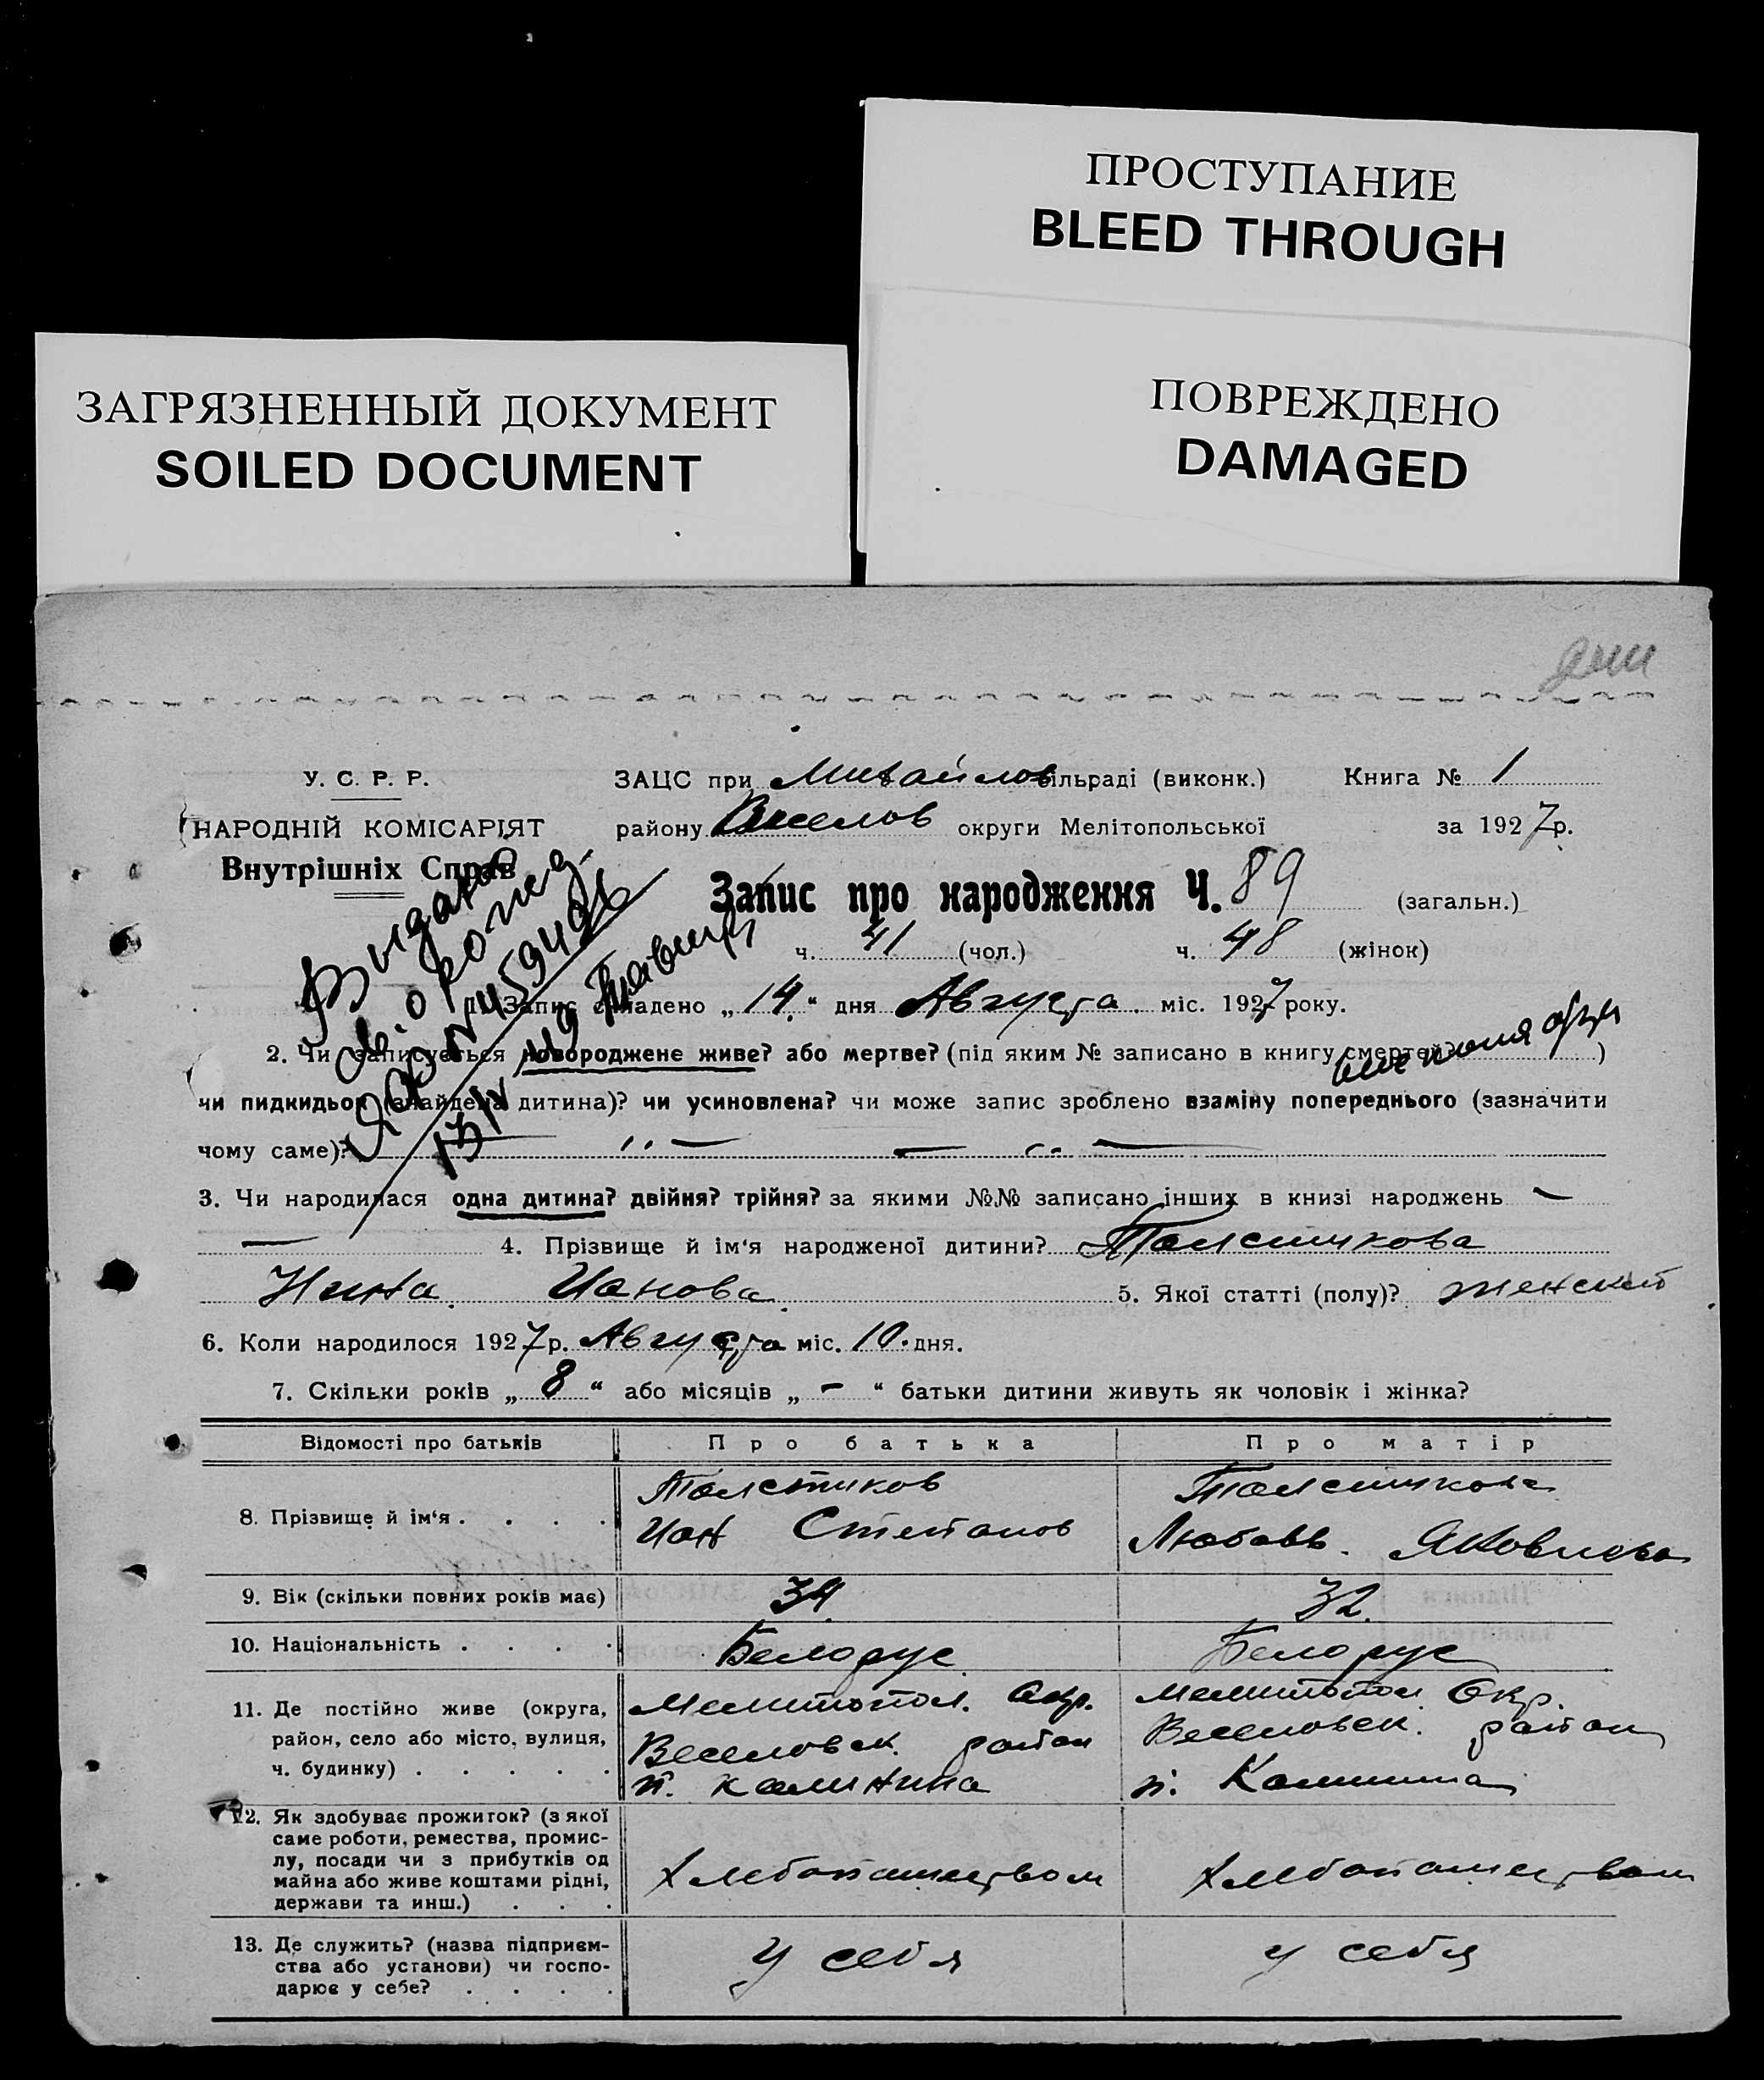 ПРОСТУПАНИЕ
BLEED THROUGH
ЗАГРЯЗНЕННЫЙ ДОКУМЕНТ
SOILED DOCUMENT
ПОВРЕЖДЕНО
DAMAGED
У. С. Р. Р.
НАРОДНІЙ КОМІСАРІЯТ
Внутрішніх Справ
ЗАЦС при Михайлов сільраді (виконк.) Книга № 1
району Веселов округи Мелітопольської за 1927 р.
Запис про народження Ч. 89 (загальн.)
ч. 41 (чол.) ч. 48 (жінок)
Выдано
св. о рожд.
1. Запис складено „14“ дня Августа міс. 1927 року.
2. Чи записується новороджене живе? або мертве? (під яким № записано в книгу смертей? )
чи пидкидьок (знайдена дитина)? чи усиновлена? чи може запис зроблено взаміну попереднього (зазначити
чому саме)? — „ — — „ —
3. Чи народилася одна дитина? двійня? трійня? за якими №№ записано інших в книзі народжень —
— 4. Прізвище й ім'я народженої дитини? Толстикова
Нина Иянова 5. Якої статті (полу)? женский
6. Коли народилося 1927 р. Августа міс. 10 дня.
7. Скільки років „8“ або місяців „-“ батьки дитини живуть як чоловік і жінка?
Відомості про батьків Про батька Про матір
8. Прізвище й ім'я . . . . Толстиков Толстикова
Иян Степанов Любовь Яковлева
9. Вік (скільки повних років має) 34 32
10. Національність . . . . Белорус Белорус
11. Де постійно живе (округа, Мелитопол. Окр. Мелитопол Окр.
район, село або місто, вулиця, Веселовск. район Веселовск. район
ч. будинку) . . . . . п. Калинина п. Калинина
12. Як здобуває прожиток? (з якої
саме роботи, ремества, промис-
лу, посади чи з прибутків од
майна або живе коштами рідні, Хлебопашеством Хлебопашеством
держави та инш.) . . .
13. Де служить? (назва підприєм-
ства або установи) чи госпо- У себя у себя
дарює у себе? . . . .